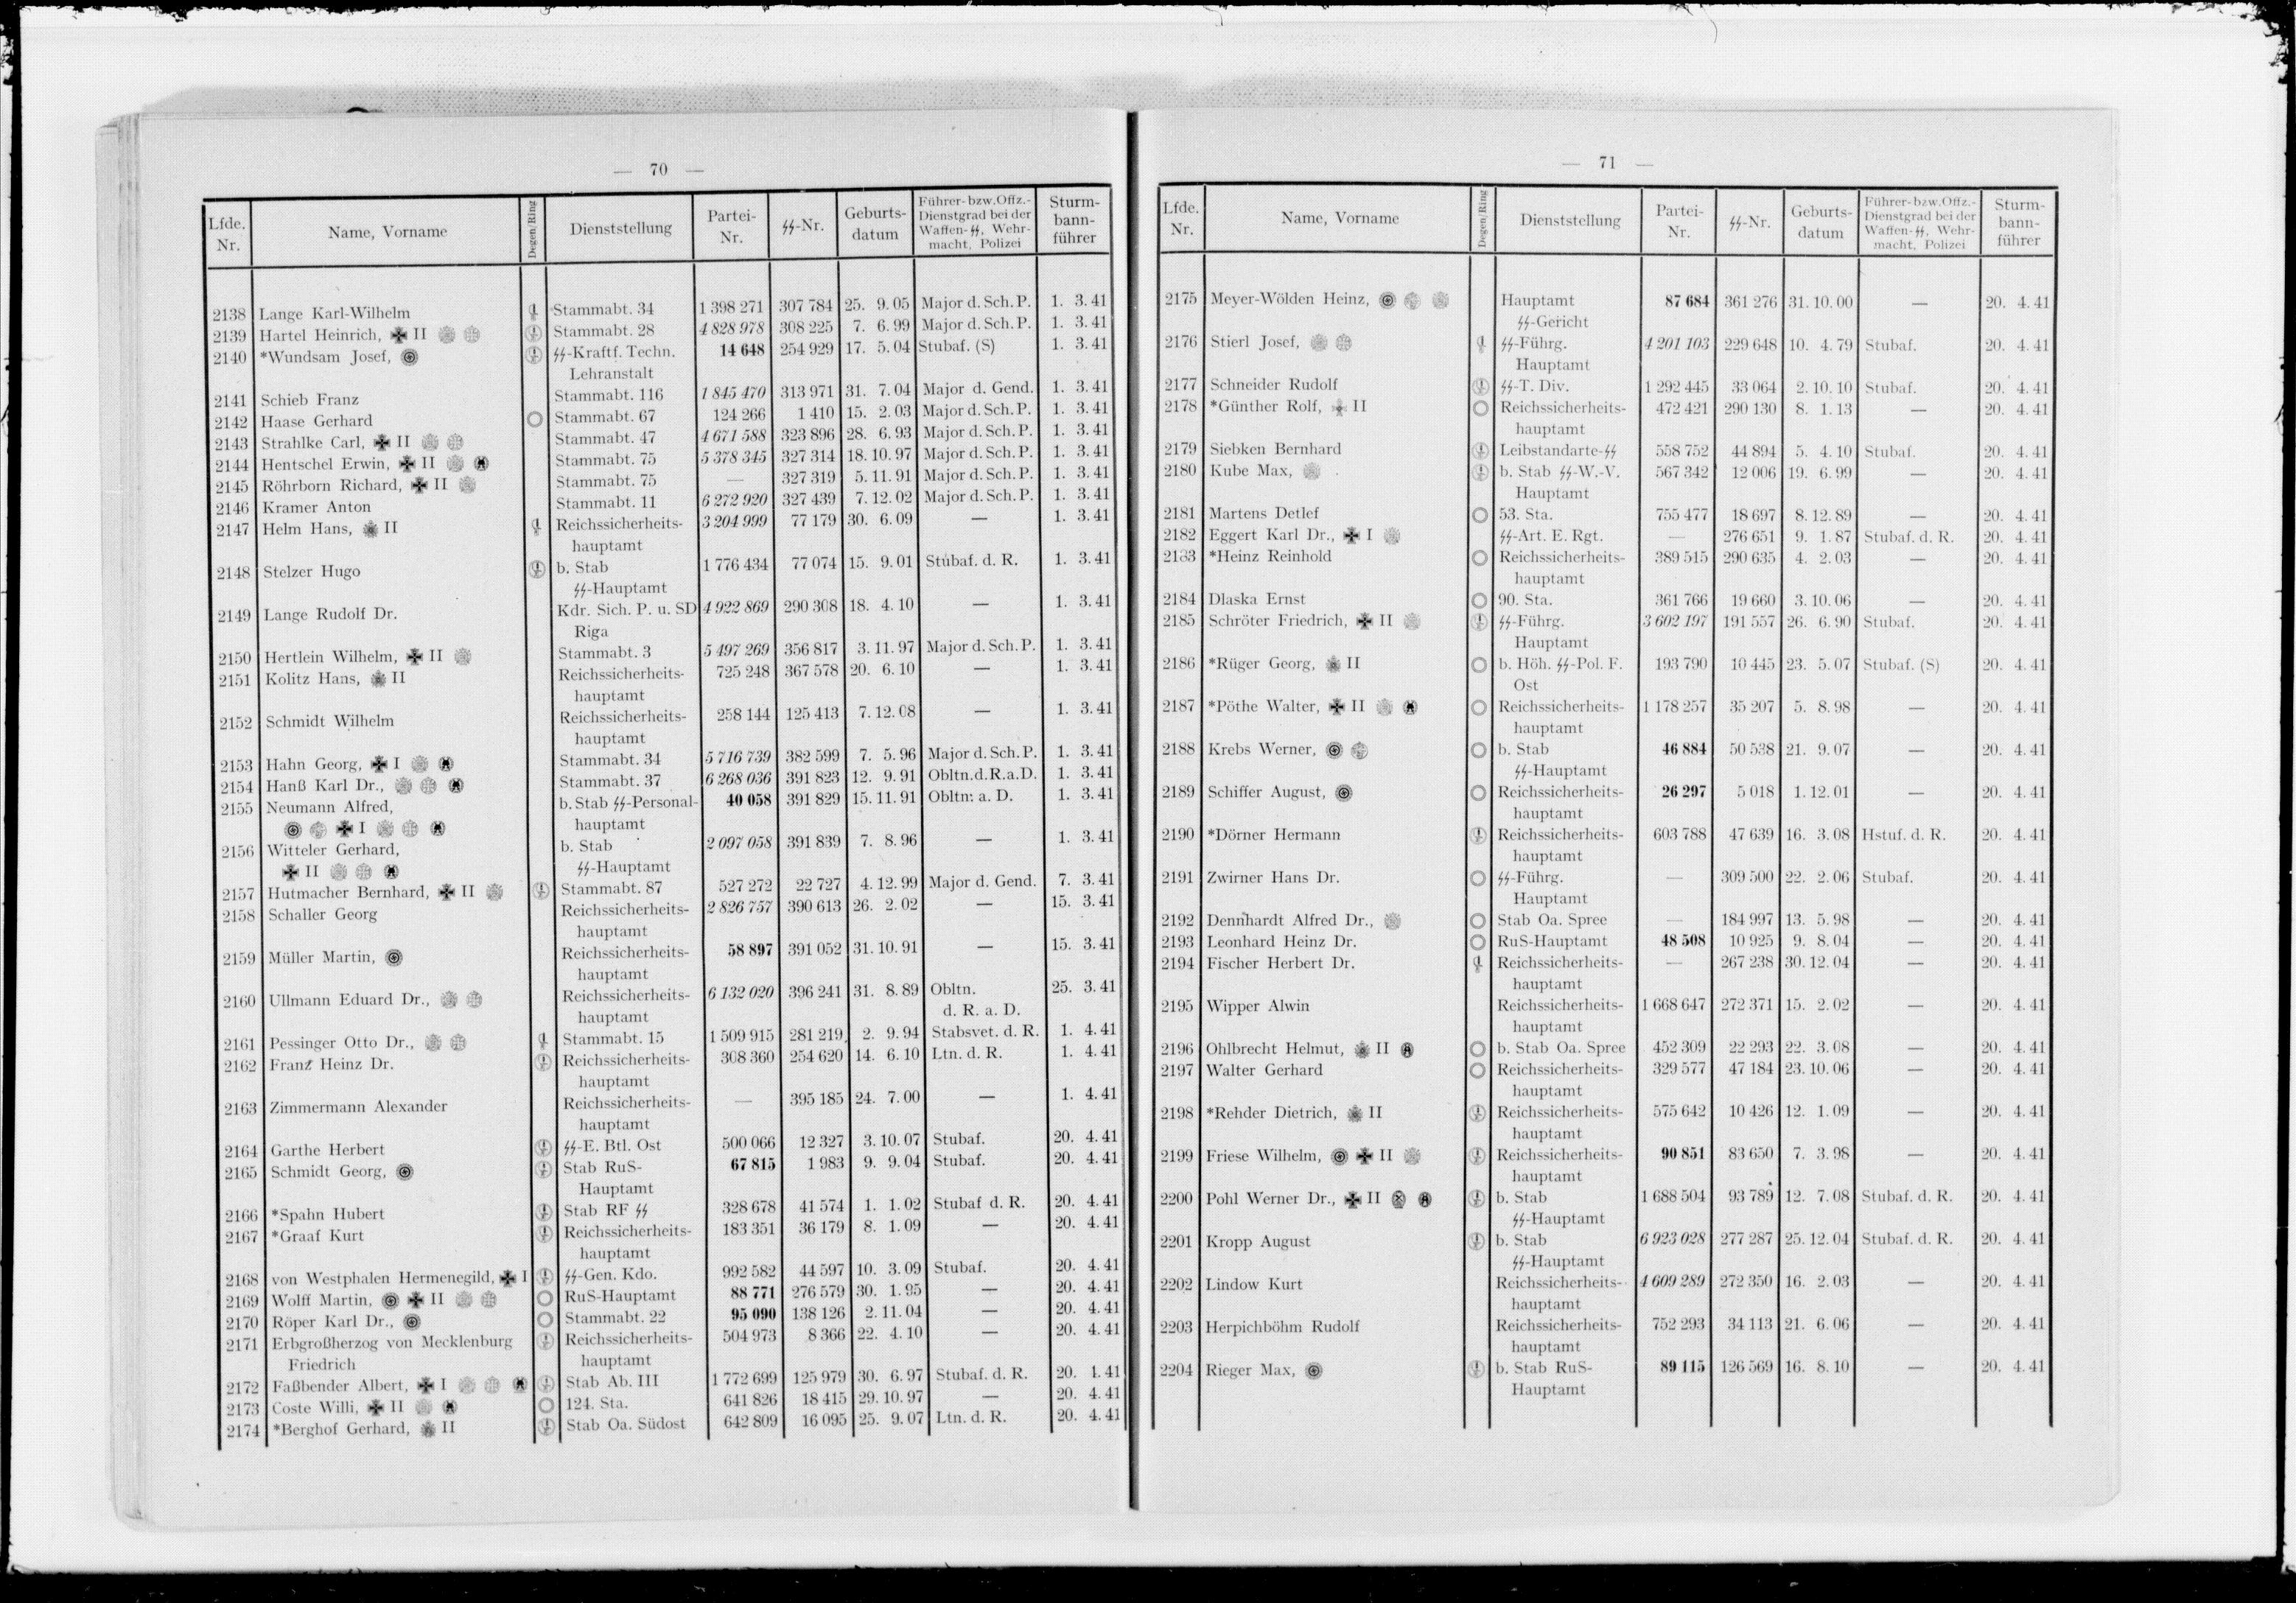 — 70 —
Lfde. Nr. Name, Vorname Degen/Ring Dienststellung Partei-Nr. ᛋᛋ-Nr. Geburts-datum Führer- bzw. Offz.-Dienstgrad bei der Waffen-ᛋᛋ, Wehr-macht, Polizei Sturm-bann-führer
2138 Lange Karl-Wilhelm Stammabt. 34 1 398 271 307 784 25. 9. 05 Major d. Sch. P. 1. 3. 41
2139 Hartel Heinrich, II Stammabt. 28 4 828 978 308 225 7. 6. 99 Major d. Sch. P. 1. 3. 41
2140 *Wundsam Josef, ᛋᛋ-Kraftf. Techn. 14 648 254 929 17. 5. 04 Stubaf. (S) 1. 3. 41
Lehranstalt
2141 Schieb Franz Stammabt. 116 1 845 470 313 971 31. 7. 04 Major d. Gend. 1. 3. 41
2142 Haase Gerhard Stammabt. 67 124 266 1 410 15. 2. 03 Major d. Sch. P. 1. 3. 41
2143 Strahlke Carl, II Stammabt. 47 4 671 588 323 896 28. 6. 93 Major d. Sch. P. 1. 3. 41
2144 Hentschel Erwin, II Stammabt. 75 5 378 345 327 314 18. 10. 97 Major d. Sch. P. 1. 3. 41
2145 Röhrborn Richard, II Stammabt. 75 — 327 319 5. 11. 91 Major d. Sch. P. 1. 3. 41
2146 Kramer Anton Stammabt. 11 6 272 920 327 439 7. 12. 02 Major d. Sch. P. 1. 3. 41
2147 Helm Hans, II Reichssicherheits- 3 204 999 77 179 30. 6. 09 — 1. 3. 41
hauptamt
2148 Stelzer Hugo b. Stab 1 776 434 77 074 15. 9. 01 Stubaf. d. R. 1. 3. 41
ᛋᛋ-Hauptamt
2149 Lange Rudolf Dr. Kdr. Sich. P. u. SD 4 922 869 290 308 18. 4. 10 — 1. 3. 41
Riga
2150 Hertlein Wilhelm, II Stammabt. 3 5 497 269 356 817 3. 11. 97 Major d. Sch. P. 1. 3. 41
2151 Kolitz Hans, II Reichssicherheits- 725 248 367 578 20. 6. 10 — 1. 3. 41
hauptamt
2152 Schmidt Wilhelm Reichssicherheits- 258 144 125 413 7. 12. 08 — 1. 3. 41
hauptamt
2153 Hahn Georg, I Stammabt. 34 5 716 739 382 599 7. 5. 96 Major d. Sch. P. 1. 3. 41
2154 Hanß Karl Dr., Stammabt. 37 6 268 036 391 823 12. 9. 91 Obltn. d. R. a. D. 1. 3. 41
2155 Neumann Alfred, b. Stab ᛋᛋ-Personal- 40 058 391 829 15. 11. 91 Obltn. a. D. 1. 3. 41
I hauptamt
2156 Witteler Gerhard, b. Stab 2 097 058 391 839 7. 8. 96 — 1. 3. 41
II ᛋᛋ-Hauptamt
2157 Hutmacher Bernhard, II Stammabt. 87 527 272 22 727 4. 12. 99 Major d. Gend. 7. 3. 41
2158 Schaller Georg Reichssicherheits- 2 826 757 390 613 26. 2. 02 — 15. 3. 41
hauptamt
2159 Müller Martin, Reichssicherheits- 58 897 391 052 31. 10. 91 — 15. 3. 41
hauptamt
2160 Ullmann Eduard Dr., Reichssicherheits- 6 132 020 396 241 31. 8. 89 Obltn. 25. 3. 41
hauptamt d. R. a. D.
2161 Pessinger Otto Dr., Stammabt. 15 1 509 915 281 219 2. 9. 94 Stabsvet. d. R. 1. 4. 41
2162 Franz Heinz Dr. Reichssicherheits- 308 360 254 620 14. 6. 10 Ltn. d. R. 1. 4. 41
hauptamt
2163 Zimmermann Alexander Reichssicherheits- — 395 185 24. 7. 00 — 1. 4. 41
hauptamt
2164 Garthe Herbert ᛋᛋ-E. Btl. Ost 500 066 12 327 3. 10. 07 Stubaf. 20. 4. 41
2165 Schmidt Georg, Stab RuS- 67 815 1 983 9. 9. 04 Stubaf. 20. 4. 41
Hauptamt
2166 *Spahn Hubert Stab RF ᛋᛋ 328 678 41 574 1. 1. 02 Stubaf d. R. 20. 4. 41
2167 *Graaf Kurt Reichssicherheits- 183 351 36 179 8. 1. 09 — 20. 4. 41
hauptamt
2168 von Westphalen Hermenegild, I ᛋᛋ-Gen. Kdo. 992 582 44 597 10. 3. 09 Stubaf. 20. 4. 41
2169 Wolff Martin, II RuS-Hauptamt 88 771 276 579 30. 1. 95 — 20. 4. 41
2170 Röper Karl Dr., Stammabt. 22 95 090 138 126 2. 11. 04 — 20. 4. 41
2171 Erbgroßherzog von Mecklenburg Reichssicherheits- 504 973 8 366 22. 4. 10 — 20. 4. 41
Friedrich hauptamt
2172 Faßbender Albert, I Stab Ab. III 1 772 699 125 979 30. 6. 97 Stubaf. d. R. 20. 1. 41
2173 Coste Willi, II 124. Sta. 641 826 18 415 29. 10. 97 — 20. 4. 41
2174 *Berghof Gerhard, II Stab Oa. Südost 642 809 16 095 25. 9. 07 Ltn. d. R. 20. 4. 41
— 71 —
Lfde. Nr. Name, Vorname Degen/Ring Dienststellung Partei-Nr. ᛋᛋ-Nr. Geburts-datum Führer- bzw. Offz.-Dienstgrad bei der Waffen-ᛋᛋ, Wehr-macht, Polizei Sturm-bann-führer
2175 Meyer-Wölden Heinz, Hauptamt 87 684 361 276 31. 10. 00 — 20. 4. 41
ᛋᛋ-Gericht
2176 Stierl Josef, ᛋᛋ-Führg. 4 201 103 229 648 10. 4. 79 Stubaf. 20. 4. 41
Hauptamt
2177 Schneider Rudolf ᛋᛋ-T. Div. 1 292 445 33 064 2. 10. 10 Stubaf. 20. 4. 41
2178 *Günther Rolf, II Reichssicherheits- 472 421 290 130 8. 1. 13 — 20. 4. 41
hauptamt
2179 Siebken Bernhard Leibstandarte-ᛋᛋ 558 752 44 894 5. 4. 10 Stubaf. 20. 4. 41
2180 Kube Max, b. Stab ᛋᛋ-W.-V. 567 342 12 006 19. 6. 99 — 20. 4. 41
Hauptamt
2181 Martens Detlef 53. Sta. 755 477 18 697 8. 12. 89 — 20. 4. 41
2182 Eggert Karl Dr., I ᛋᛋ-Art. E. Rgt. — 276 651 9. 1. 87 Stubaf. d. R. 20. 4. 41
2183 *Heinz Reinhold Reichssicherheits- 389 515 290 635 4. 2. 03 — 20. 4. 41
hauptamt
2184 Dlaska Ernst 90. Sta. 361 766 19 660 3. 10. 06 — 20. 4. 41
2185 Schröter Friedrich, II ᛋᛋ-Führg. 3 602 197 191 557 26. 6. 90 Stubaf. 20. 4. 41
Hauptamt
2186 *Rüger Georg, II b. Höh. ᛋᛋ-Pol. F. 193 790 10 445 23. 5. 07 Stubaf. (S) 20. 4. 41
Ost
2187 *Pöthe Walter, II Reichssicherheits- 1 178 257 35 207 5. 8. 98 — 20. 4. 41
hauptamt
2188 Krebs Werner, b. Stab 46 884 50 538 21. 9. 07 — 20. 4. 41
ᛋᛋ-Hauptamt
2189 Schiffer August, Reichssicherheits- 26 297 5 018 1. 12. 01 — 20. 4. 41
hauptamt
2190 *Dörner Hermann Reichssicherheits- 603 788 47 639 16. 3. 08 Hstuf. d. R. 20. 4. 41
hauptamt
2191 Zwirner Hans Dr. ᛋᛋ-Führg. — 309 500 22. 2. 06 Stubaf. 20. 4. 41
Hauptamt
2192 Dennhardt Alfred Dr., Stab Oa. Spree — 184 997 13. 5. 98 — 20. 4. 41
2193 Leonhard Heinz Dr. RuS-Hauptamt 48 508 10 925 9. 8. 04 — 20. 4. 41
2194 Fischer Herbert Dr. Reichssicherheits- — 267 238 30. 12. 04 — 20. 4. 41
hauptamt
2195 Wipper Alwin Reichssicherheits- 1 668 647 272 371 15. 2. 02 — 20. 4. 41
hauptamt
2196 Ohlbrecht Helmut, II b. Stab Oa. Spree 452 309 22 293 22. 3. 08 — 20. 4. 41
2197 Walter Gerhard Reichssicherheits- 329 577 47 184 23. 10. 06 — 20. 4. 41
hauptamt
2198 *Rehder Dietrich, II Reichssicherheits- 575 642 10 426 12. 1. 09 — 20. 4. 41
hauptamt
2199 Friese Wilhelm, II Reichssicherheits- 90 851 83 650 7. 3. 98 — 20. 4. 41
hauptamt
2200 Pohl Werner Dr., II b. Stab 1 688 504 93 789 12. 7. 08 Stubaf. d. R. 20. 4. 41
ᛋᛋ-Hauptamt
2201 Kropp August b. Stab 6 923 028 277 287 25. 12. 04 Stubaf. d. R. 20. 4. 41
ᛋᛋ-Hauptamt
2202 Lindow Kurt Reichssicherheits- 4 609 289 272 350 16. 2. 03 — 20. 4. 41
hauptamt
2203 Herpichböhm Rudolf Reichssicherheits- 752 293 34 113 21. 6. 06 — 20. 4. 41
hauptamt
2204 Rieger Max, b. Stab RuS- 89 115 126 569 16. 8. 10 — 20. 4. 41
Hauptamt